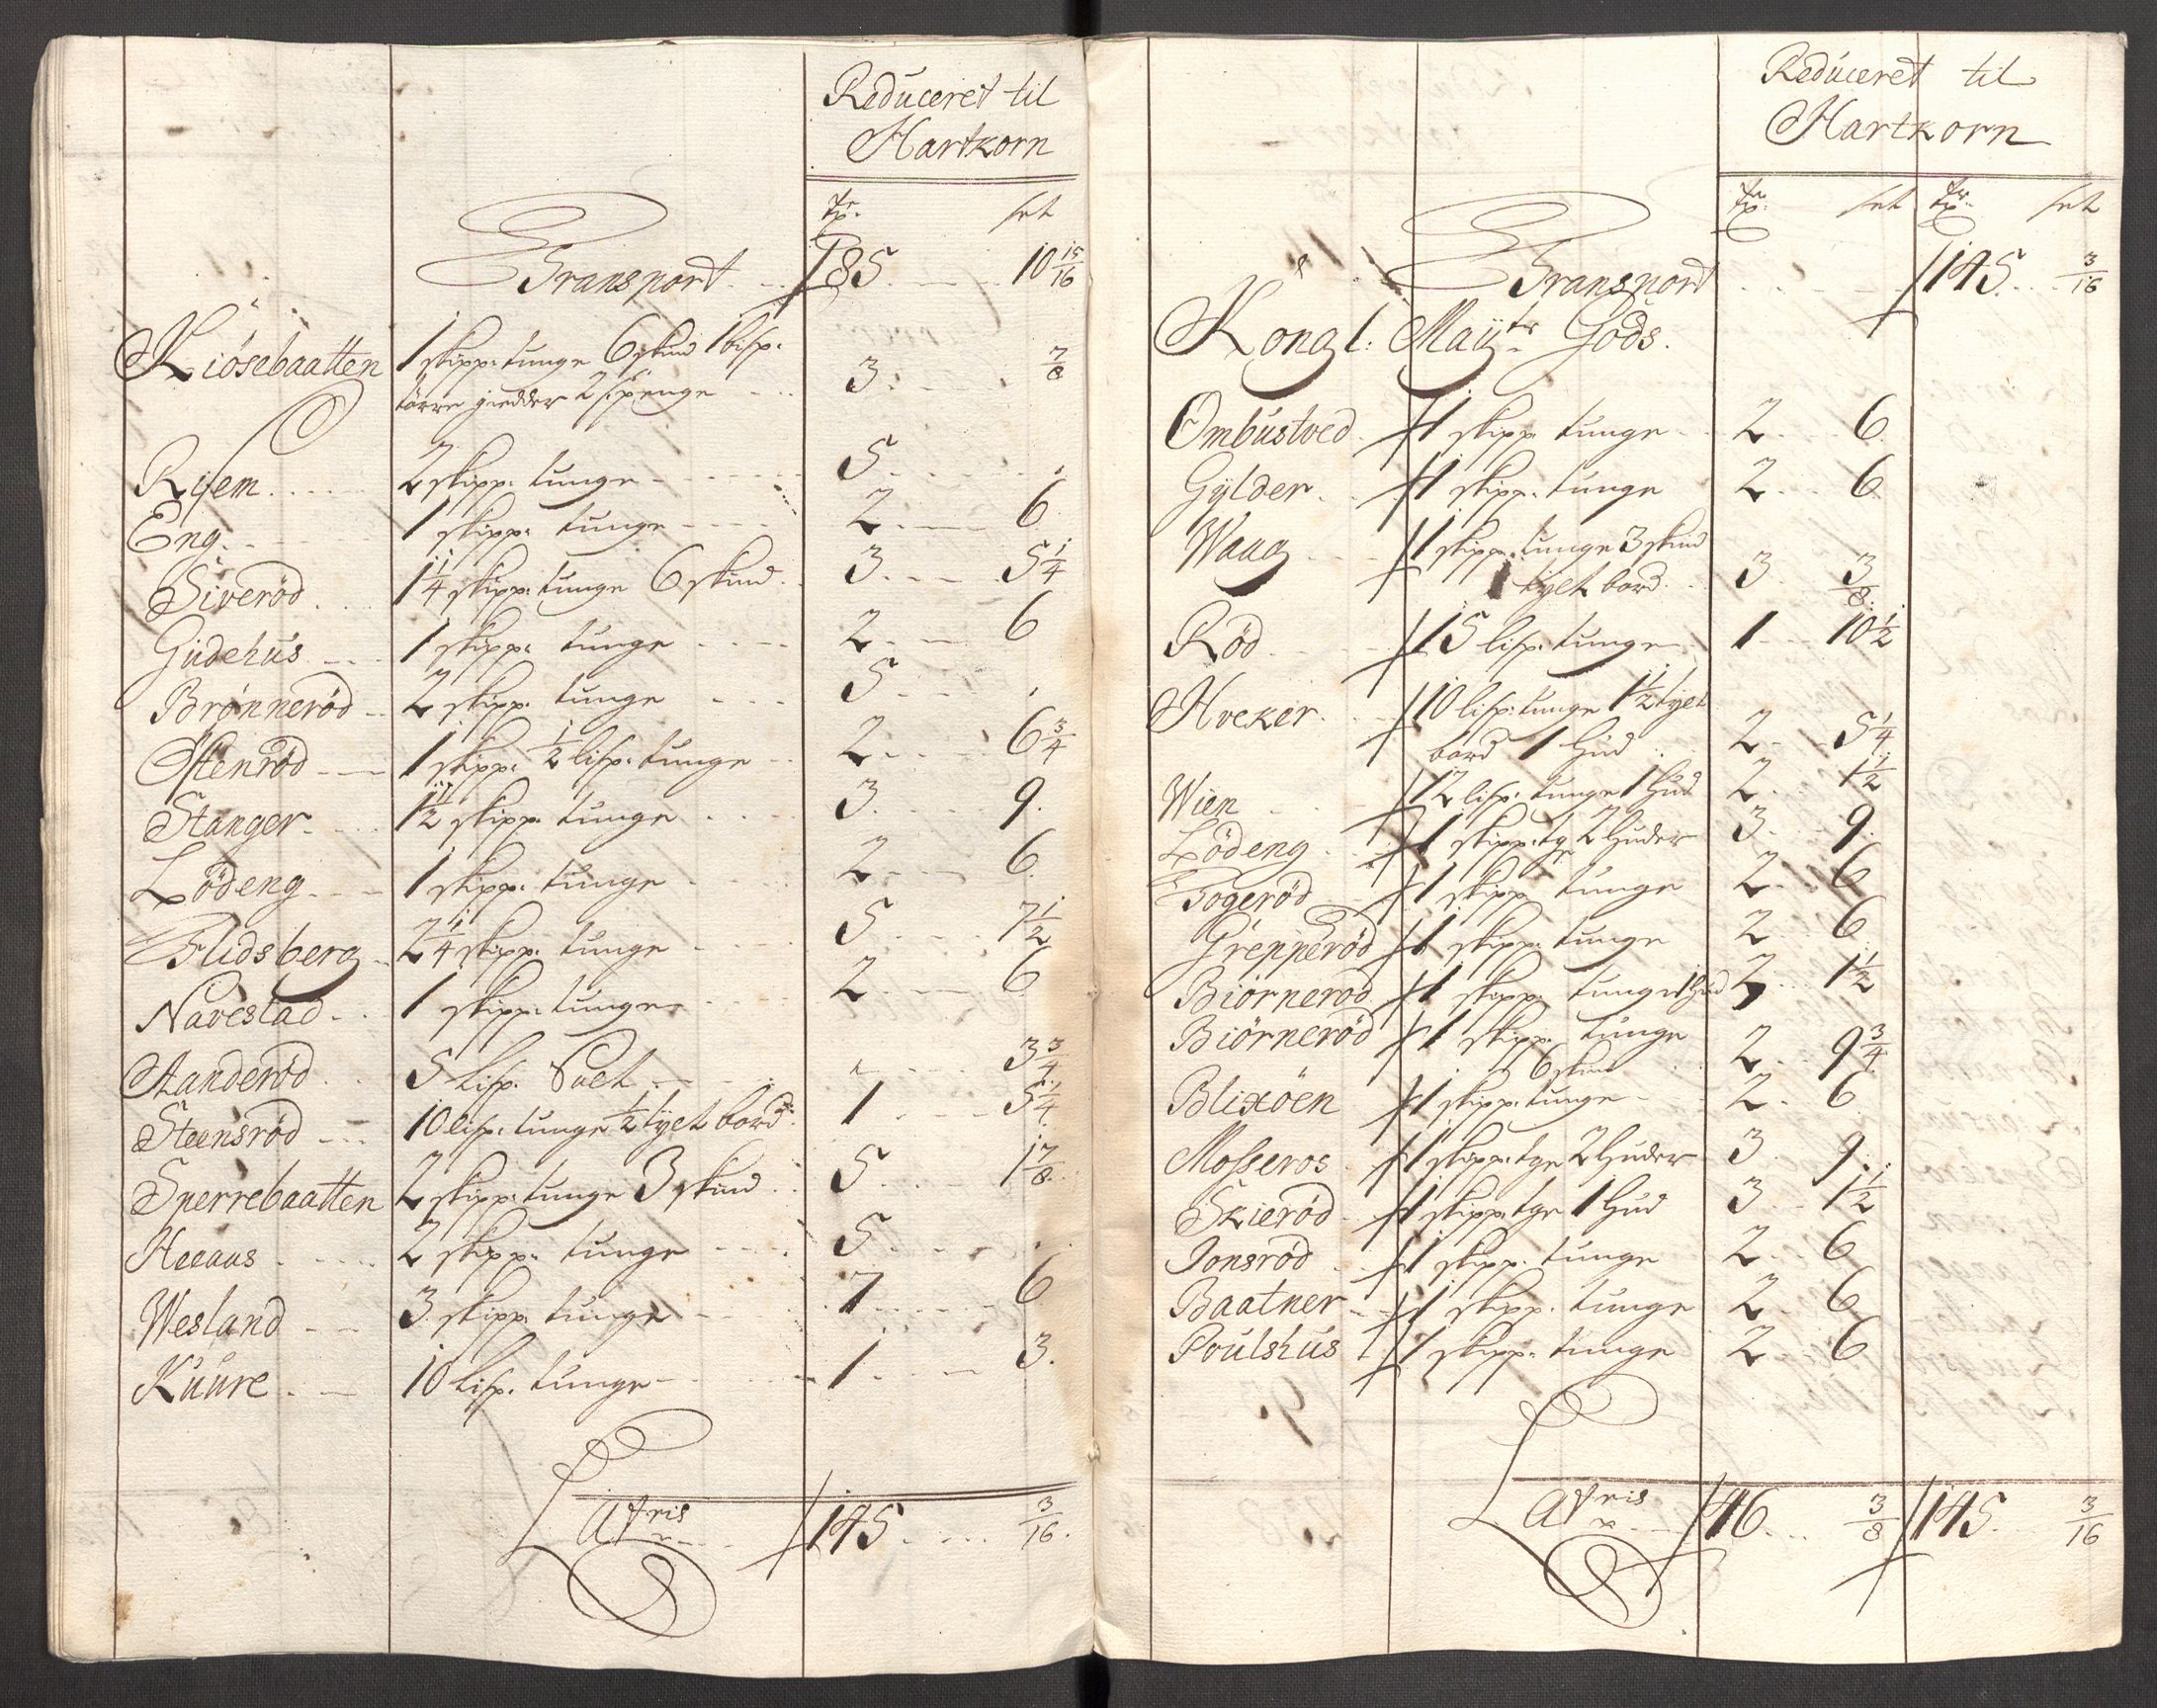 Reduceret til
Hartkorn
Tr. set
Transport 85 10 15/16
Kiösebaatten 1 skipp: tunge 6 skind 1 bisp.
törre giedder 2 s: penge 3 7/8
Risem 2 skipp. tunge 5
Eng 1 skipp: tunge 2 6
Siveröd 1 1/4 skipp: tunge 6 skind 3 5 1/4
Gudehus 1 skipp: tunge 2 6
Brønneröd 2 skipp. tunge 5
Østenröd 1 skipp. 1/2 lisp. tunge 2 6 3/4
Stanger 1 1/2 skipp. tunge 3 9
Lödeng 1 skipp. tunge 2 6
Flidsberg 2 1/4 skipp. tunge 5 7 1/2
Navestad 1 skipp: tunge 2 6
Aanderöd 5 lisp. Salt 3 3/4
Steensröd 10 lisp. tunge 1/2 tylt bord 1 5 1/4
Sperrebaatten 2 skipp: tunge 3 skind 5 1 7/8
Heeaas 2 skipp. tunge 5
Wesland 3 skipp. tunge 7 6
Kuure 10 lisp. tunge 1 3
Lateris 145 3/16
Reduceret til
Hartkorn
Tr. set Tr. set
Transport 145 3/16
Kongl: Mayts Gods.
Ombustved 1 skipp tunge 2 6
Gylder 1 skipp. tunge 2 6
Waag 1 skipp. tunge 3 skind
1 tylt bord 3 3/8
Röd 15 lisp. tunge 1 10 1/2
Hveker 10 lisp: tunge 1 1/2 tylt
bord 1 Hud 2 5 1/4
Wien 12 lisp: tunge 1 Hud 2 1 1/2
Lödeng 1 skipp. tge 2 Huder 3 9
Togeröd 1 skipp tunge 2 6
Grepperöd 1 skipp. tunge 2 6
Biörneröd 1 skipp. tunge 1 Hud 3 1 1/2
Biörneröd 1 skipp. tunge
6 skind 2 9 3/4
Blixöen 1 skipp: tunge 2 6
Mosseros 1 skipp. tge 2 Huder 3 9
Skieröd 1 skipp. tge 1 Hud 3 1 1/2
Jonsröd 1 skipp. tunge 2 6
Baatner 1 skipp. tunge 2 6
Poulshus 1 skipp. tunge 2 6
Lateris 46 3/8 145 3/16